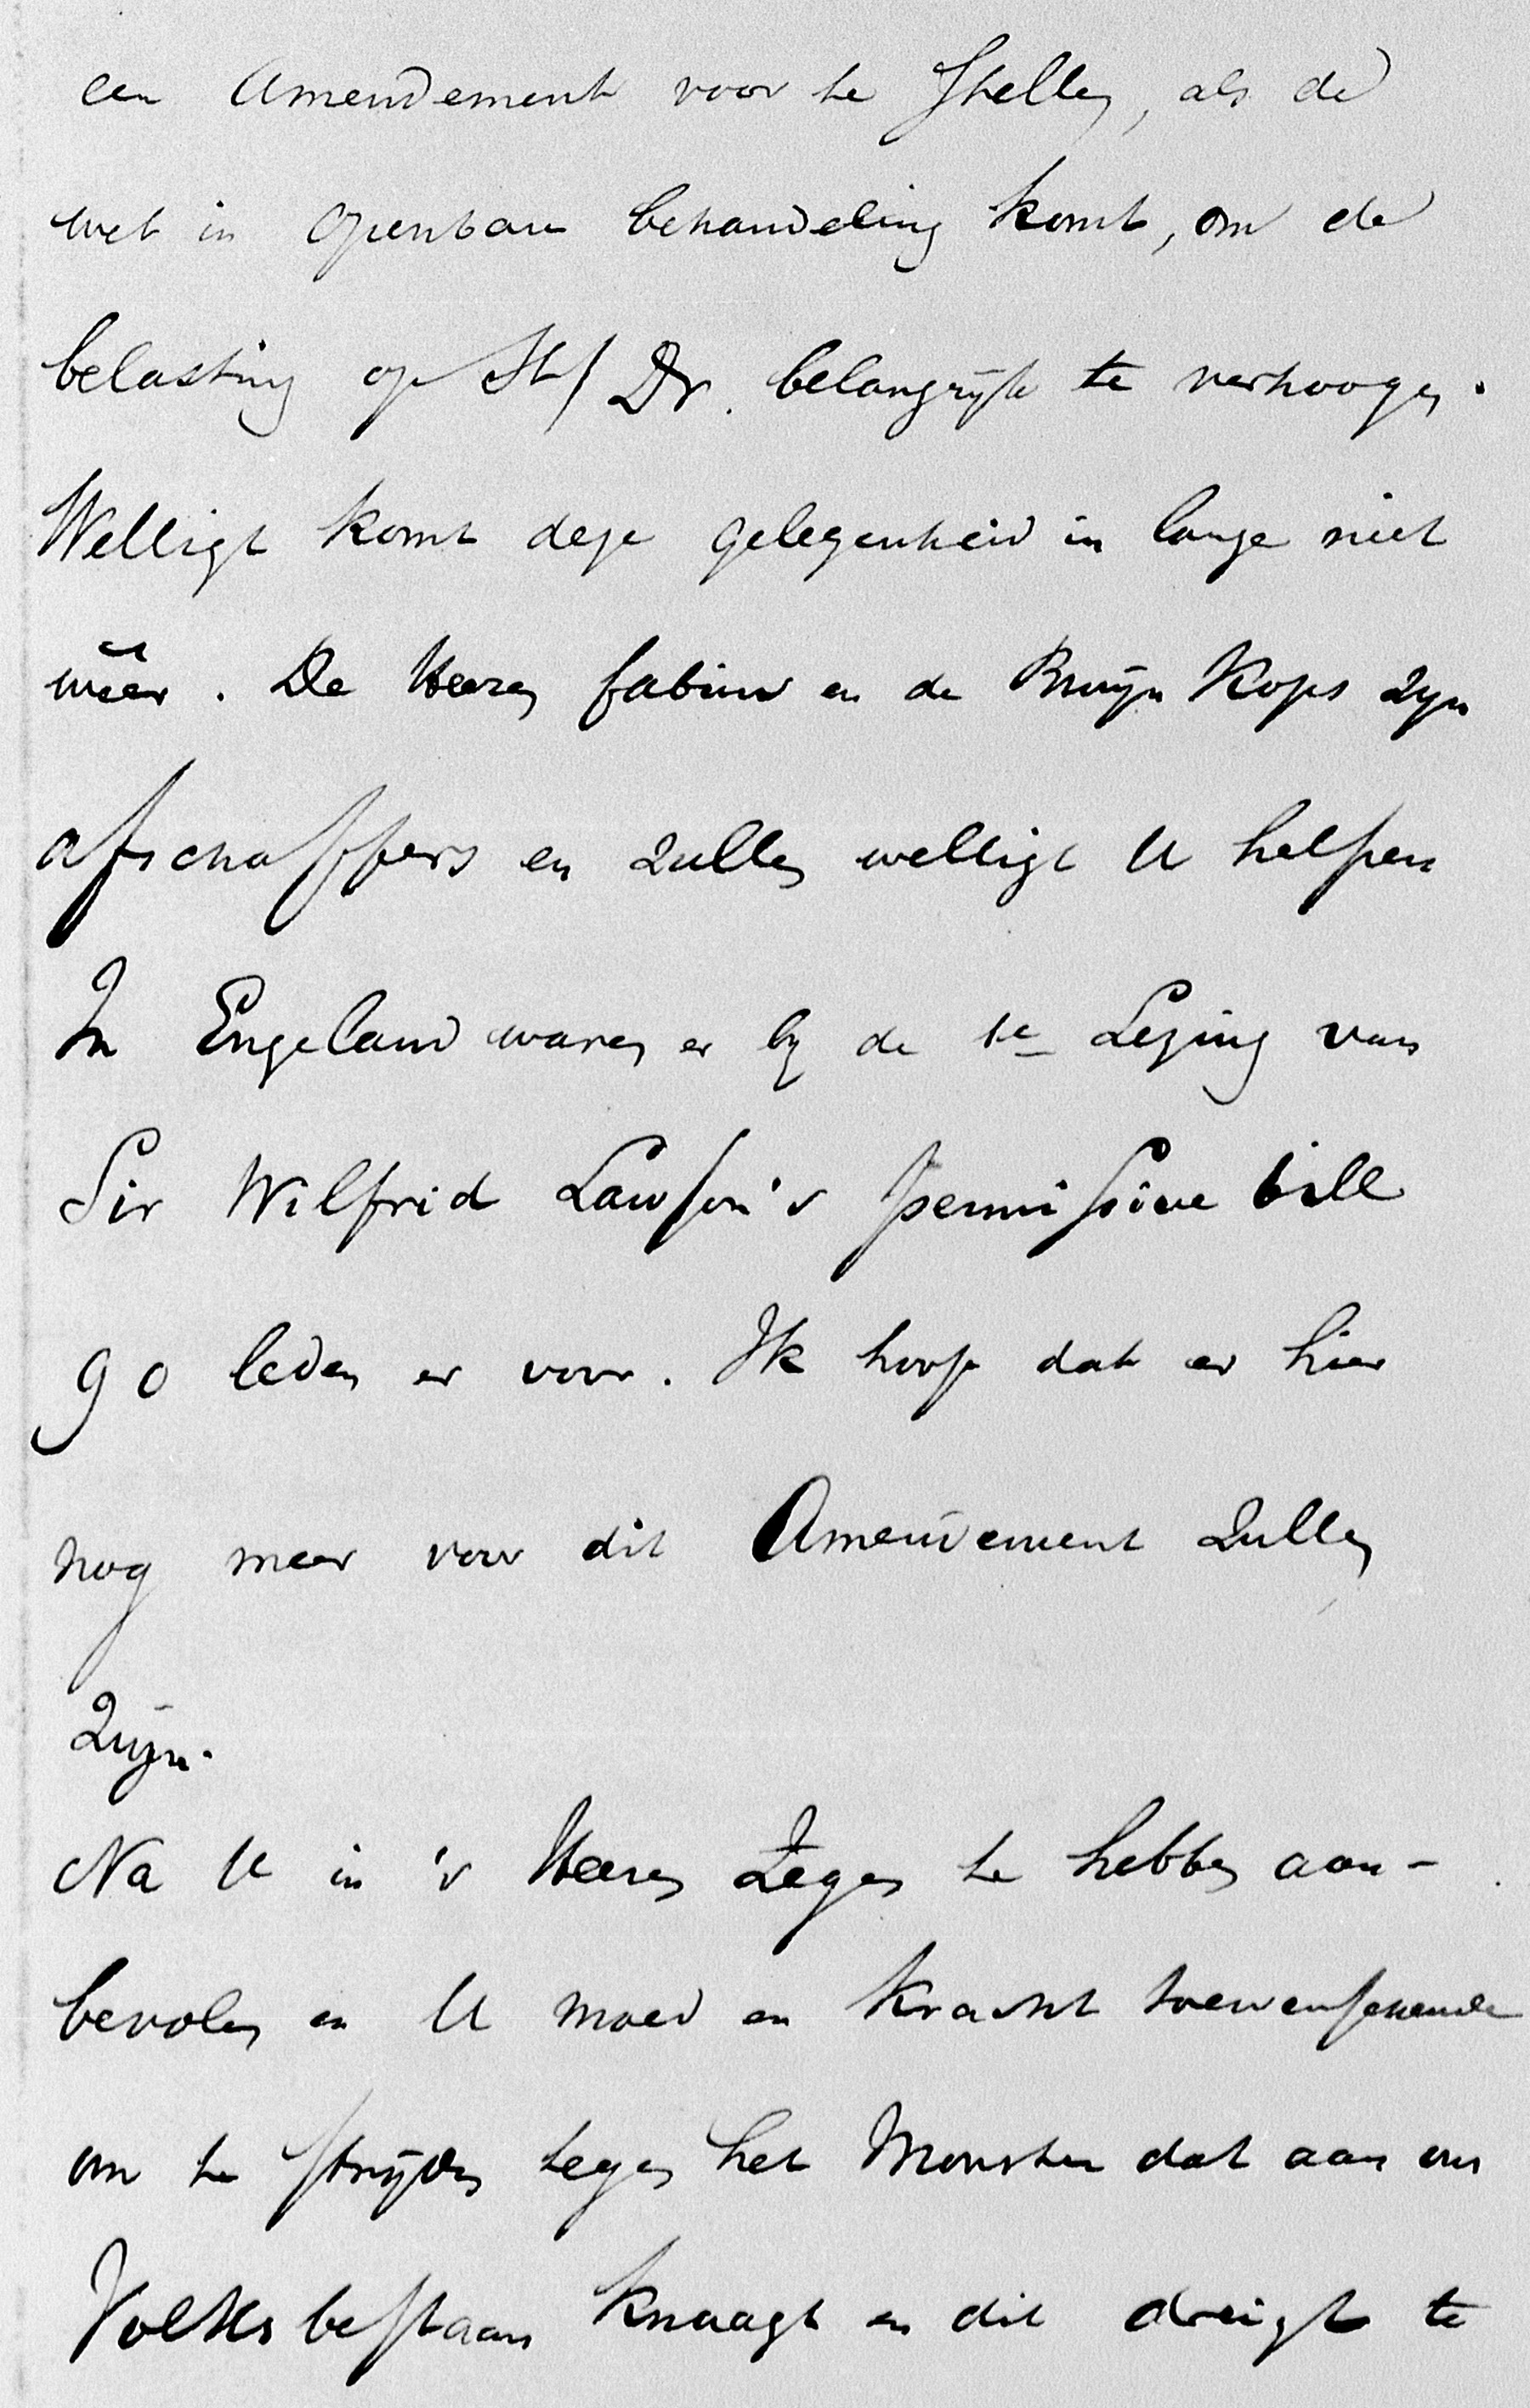 een Amendement voor te stellen, als de
wet in openbare behandeling komt, om de
belasting op St/ Dr. belangrijk te verhoogen.
Welligt komt deze gelegenheid in lange niet
wêer. De Heeren Fabius en de Bruyn Kops zyn
afschaffers en zullen welligt U helpen
In Engeland waren er by de 1e Lezing van
Sir Wilfrid Lawson's permissive bill
90 leden er voor. Ik hoop dat er hier
nog meer voor dit Amendement zullen
zijn.
Na U in 's Heeren Zegen te hebben aan-
bevolen en U moed en kracht toewenschende
om te strijden tegen het Monster dat aan ons
Volksbestaan knaagt en dit dreigt te